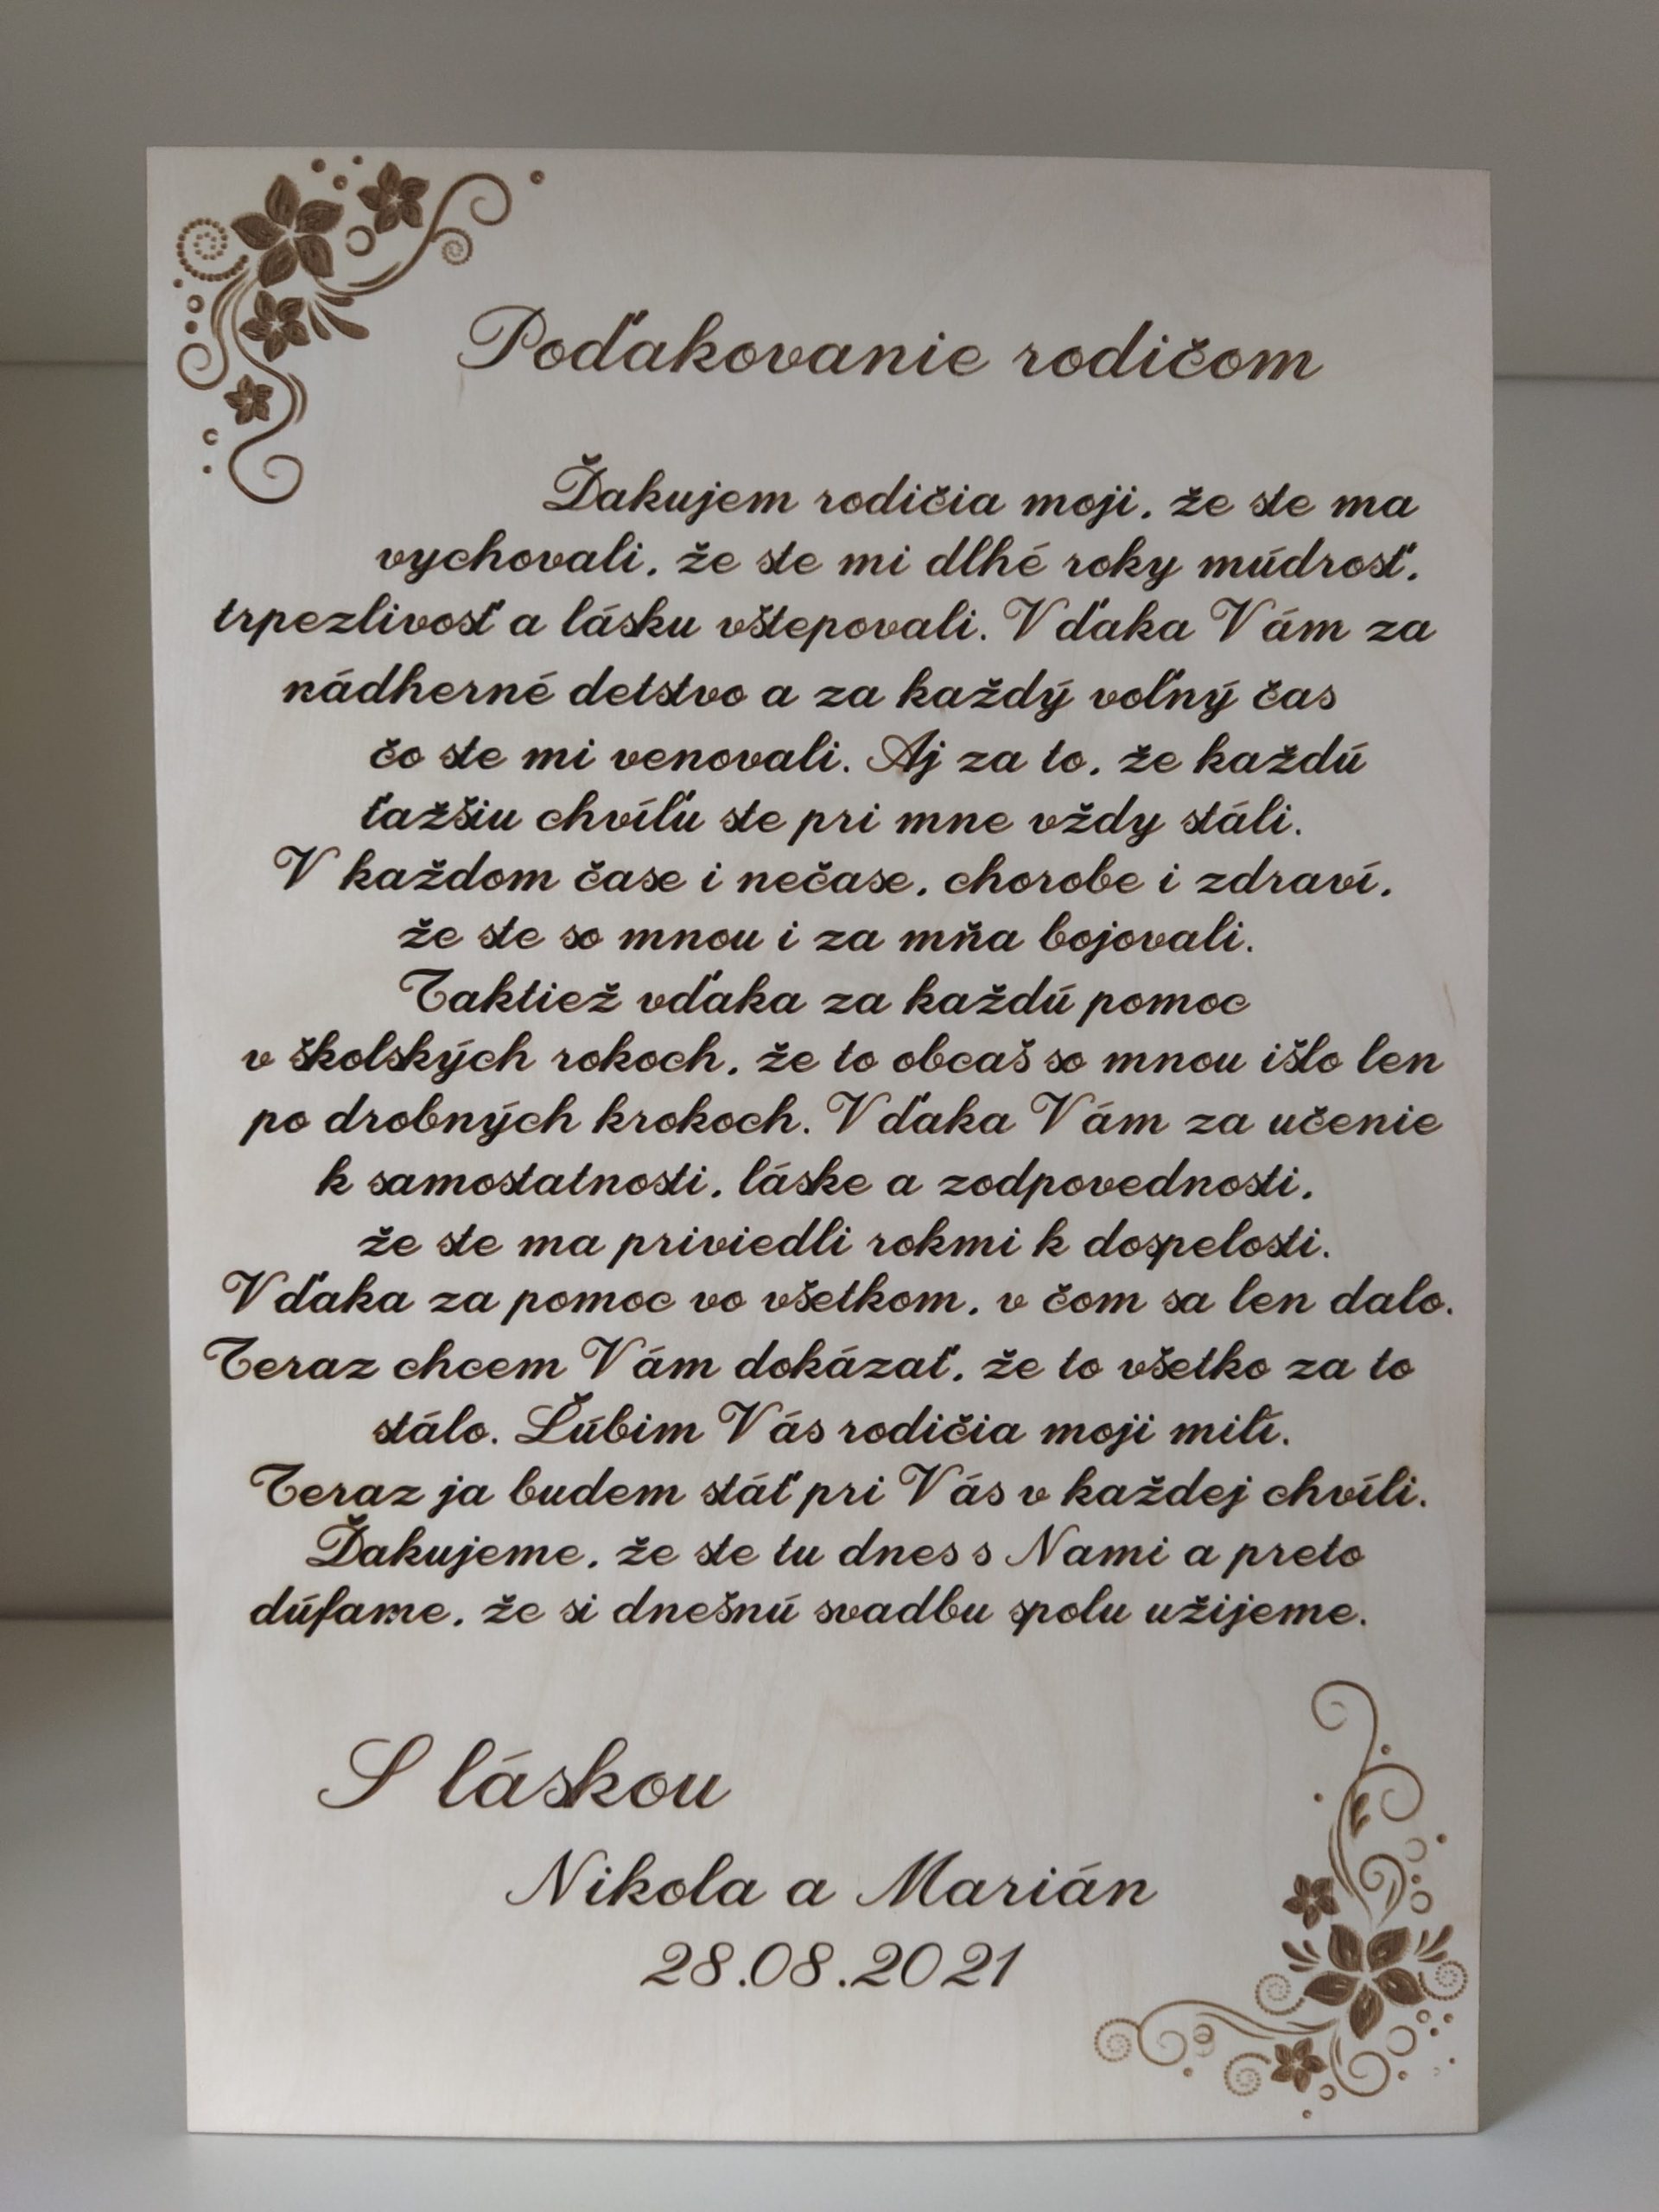 Poďakovanie rodičom
Ďakujem rodičia moji, že ste ma
vychovali, že ste mi dlhé roky múdrosť,
trpezlivosť a lásku vštepovali. Vďaka Vám za
nádherné detstvo a za každý voľný čas
čo ste mi venovali. Aj za to, že každú
ťažšiu chvíľu ste pri mne vždy stáli.
V každom čase i nečase, chorobe i zdraví,
že ste so mnou i za mňa bojovali.
Taktiež vďaka za každú pomoc
v školských rokoch, že to obcaš so mnou išlo len
po drobných krokoch. Vďaka Vám za učenie
k samostatnosti, láske a zodpovednosti,
že ste ma priviedli rokmi k dospelosti.
Vďaka za pomoc vo všetkom, v čom sa len dalo.
Teraz chcem Vám dokázať, že to všetko za to
stálo. Ľúbim Vás rodičia moji milí.
Teraz ja budem stáť pri Vás v každej chvíli.
Ďakujeme, že ste tu dnes s Nami a preto
dúfame, že si dnešnú svadbu spolu užijeme.
S láskou
Nikola a Marián
28.08.2021